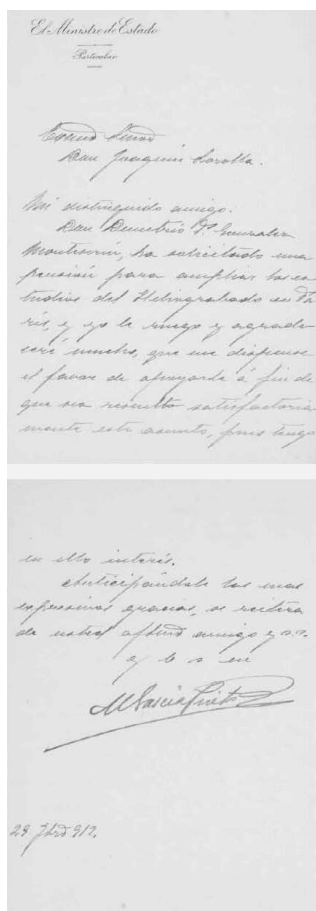 El Ministro de Estado
Particular
Excmo Señor
Don Joaquín Sorolla.
Mi distinguido amigo:
Don Demetrio Fz Gonzalez
Monterrin, ha solicitado una
pensión para ampliar los es
tudios del Heliograbado en Pa
rís, y yo le ruego y agrade
ceré mucho, que me dispense
el favor de apoyarle á fin de
que sea resuelto satisfactoria
mente este asunto, pues tengo
en ello interés.
Anticipándole las mas
expresivas gracias, se reitera
de usted affmo amigo y s.s.
q b s m
M García Prieto
912.